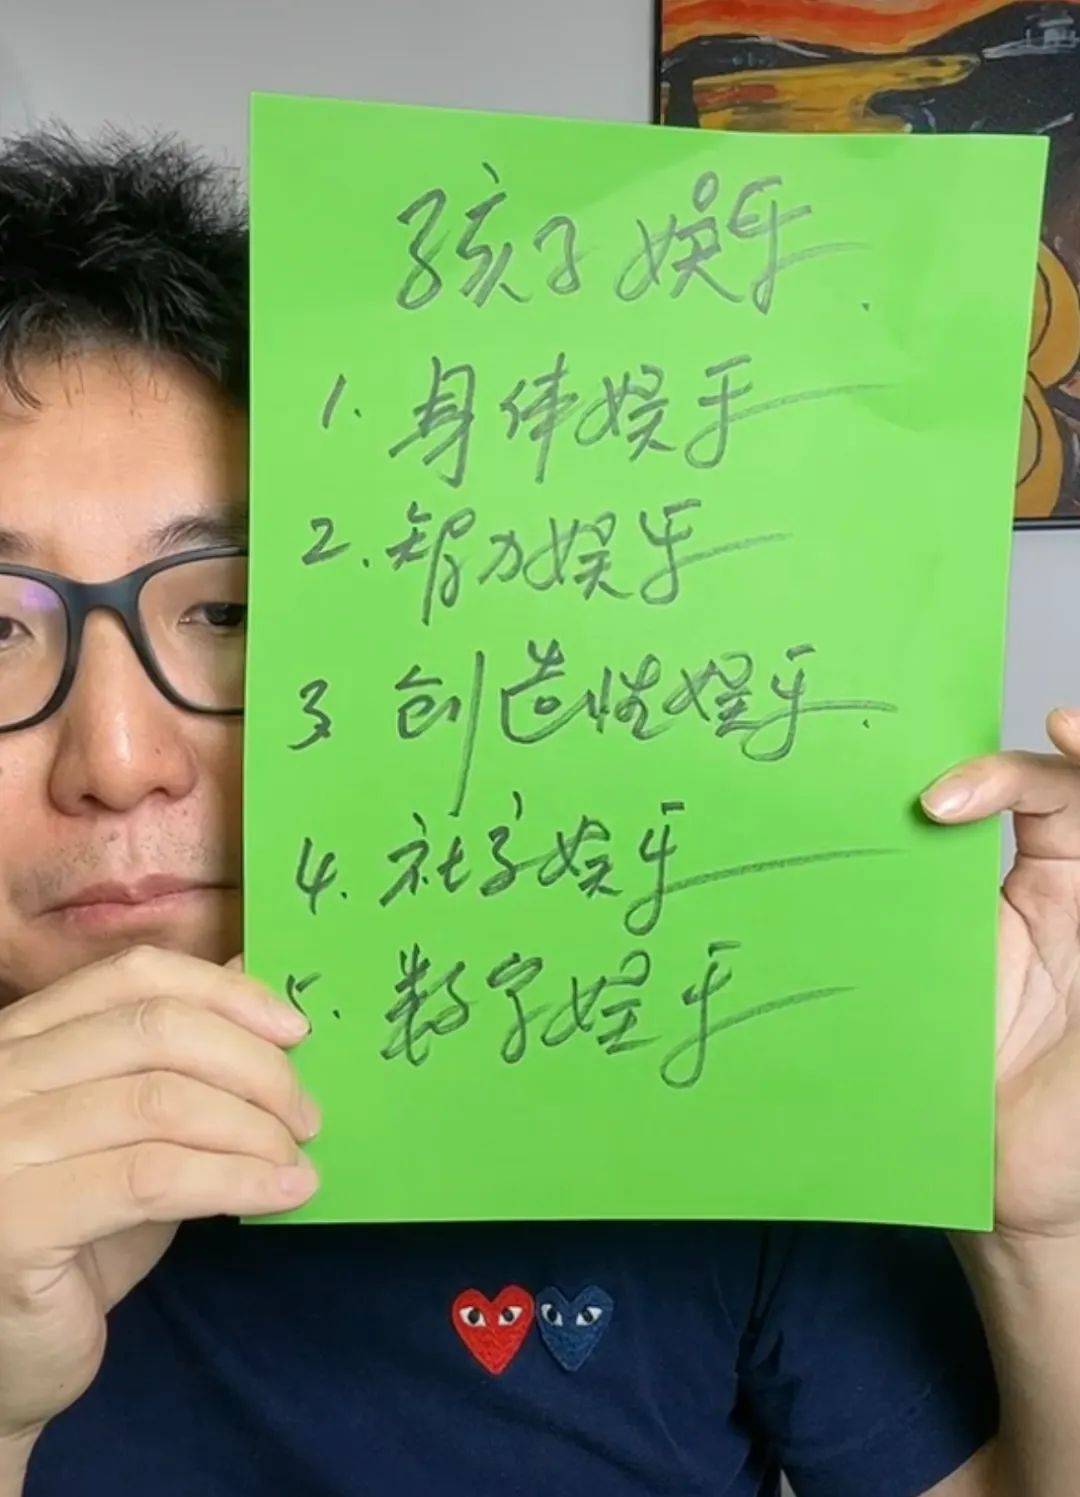 孩子娱乐.
1. 身体娱乐
2. 智力娱乐
3 创造性娱乐.
4. 社交娱乐
5. 数字娱乐